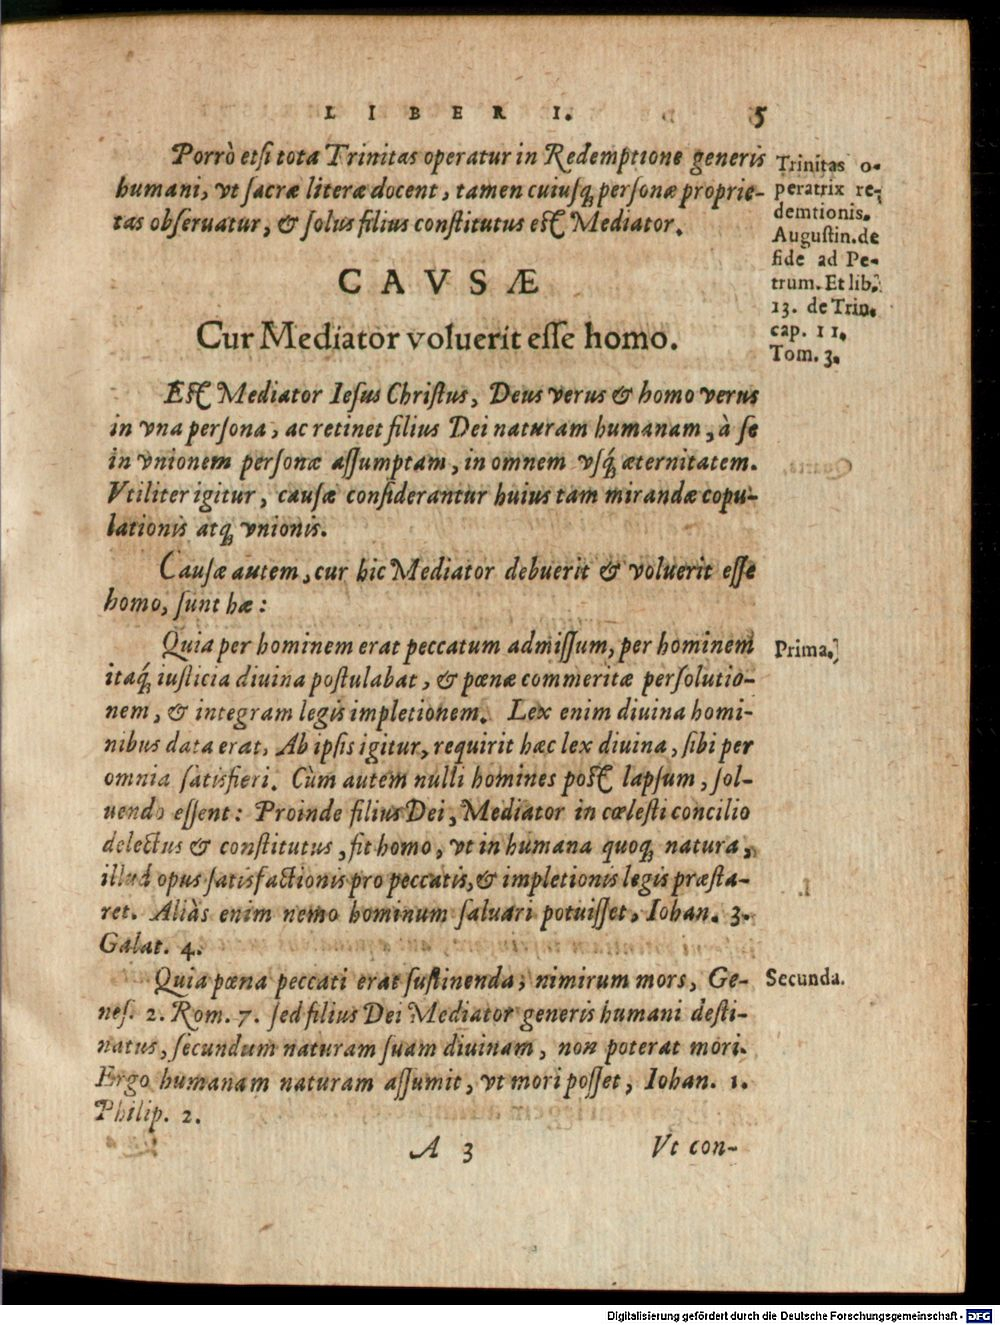 LIBER I. 5
Porrò etſi tota Trinitas operatur in Redemptione generis
humani, vt ſacræ literæ docent, tamen cuiuſq́ perſonæ proprie-
tas obſeruatur, & ſolus filius conſtitutus eſt Mediator.
Trinitas o-
peratrix re-
demtionis.
Auguſtin. de
fide ad Pe-
trum. Et lib.
13. de Trin.
cap. 11.
Tom. 3.
CAVSÆ
Cur Mediator voluerit eſſe homo.
Eſt Mediator Ieſus Chriſtus, Deus verus & homo verus
in vna perſona, ac retinet filius Dei naturam humanam, à ſe
in vnionem perſonæ aſſumptam, in omnem vſq́ æternitatem.
Vtiliter igitur, cauſæ conſiderantur huius tam mirandæ copu-
lationis atq; vnionis.
Cauſæ autem, cur hic Mediator debuerit & voluerit eſſe
homo, ſunt hæ:
Quia per hominem erat peccatum admiſſum, per hominem
itaq́ iuſticia diuina poſtulabat, & pœnæ commeritæ perſolutio-
nem, & integram legis impletionem. Lex enim diuina homi-
nibus data erat, Ab ipſis igitur, requirit hæc lex diuina, ſibi per
omnia ſatisfieri. Cùm autem nulli homines poſt lapſum, ſol-
uendo eſſent: Proinde filius Dei, Mediator in cœleſti concilio
delectus & conſtitutus, fit homo, vt in humana quoq; natura,
illud opus ſatisfactionis pro peccatis, & impletionis legis præſta-
ret. Aliàs enim nemo hominum ſaluari potuiſſet, Iohan. 3.
Galat. 4.
Prima.
Quia pœna peccati erat ſuſtinenda, nimirum mors, Ge-
neſ. 2. Rom. 7. ſed filius Dei Mediator generis humani deſti-
natus, ſecundum naturam ſuam diuinam, non poterat mori.
Ergo humanam naturam aſſumit, vt mori poſſet, Iohan. 1.
Philip. 2.
Secunda.
A 3 Vt con-
Digitalisierung gefördert durch die Deutsche Forschungsgemeinschaft - DFG